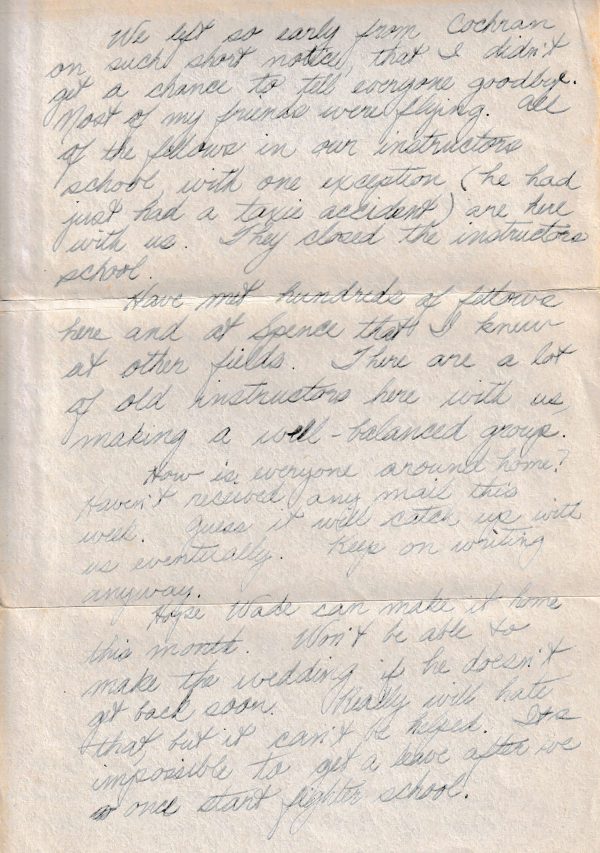 We left so early from Cochran
on such short notice, that I didn't
get a chance to tell everyone goodbye.
Most of my friends were flying. All
of the fellows in our instructors
school, with one exception (he had
just had a taxie accident) are here
with us. They closed the instructors
school.
Have met hundreds of fellows
here and at Spence that I knew
at other fields. There are a lot
of old instructors here with us,
making a well-balanced group.
How is everyone around home?
Haven't received any mail this
week. Guess it will catch up with
us eventually. Keep on writing
anyway.
Hope Wade can make it home
this month. Won't be able to
make the wedding if he doesn't
get back soon. Really will hate
that but it can't be helped. Its
impossible to get a leave after we
once start fighter school.